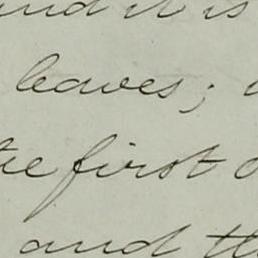 and it is
leaves;
the first
and the